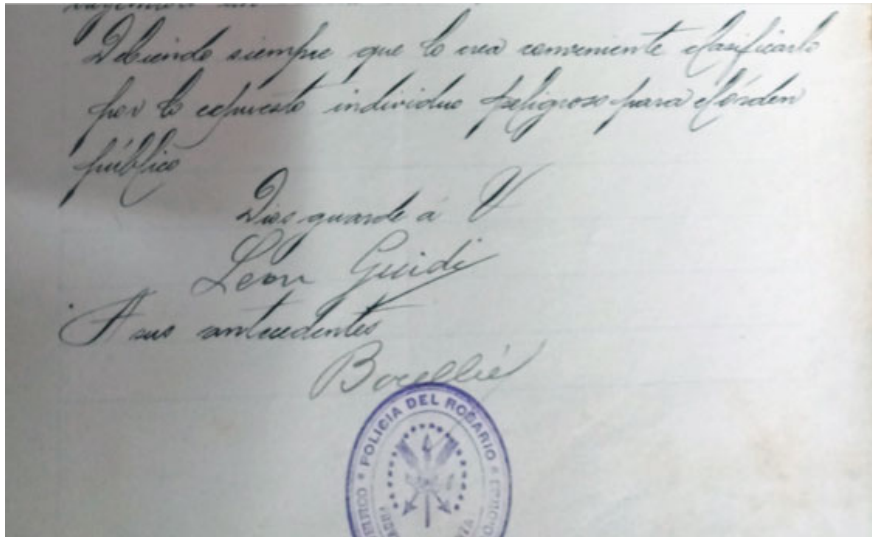 Debiendo siempre que lo crea conveniente clasificarlo
por lo expuesto individuo peligroso para el órden
público
Dios guarde á V
Leon Guidi
A sus antecedentes
POLICIA DEL ROSARIO